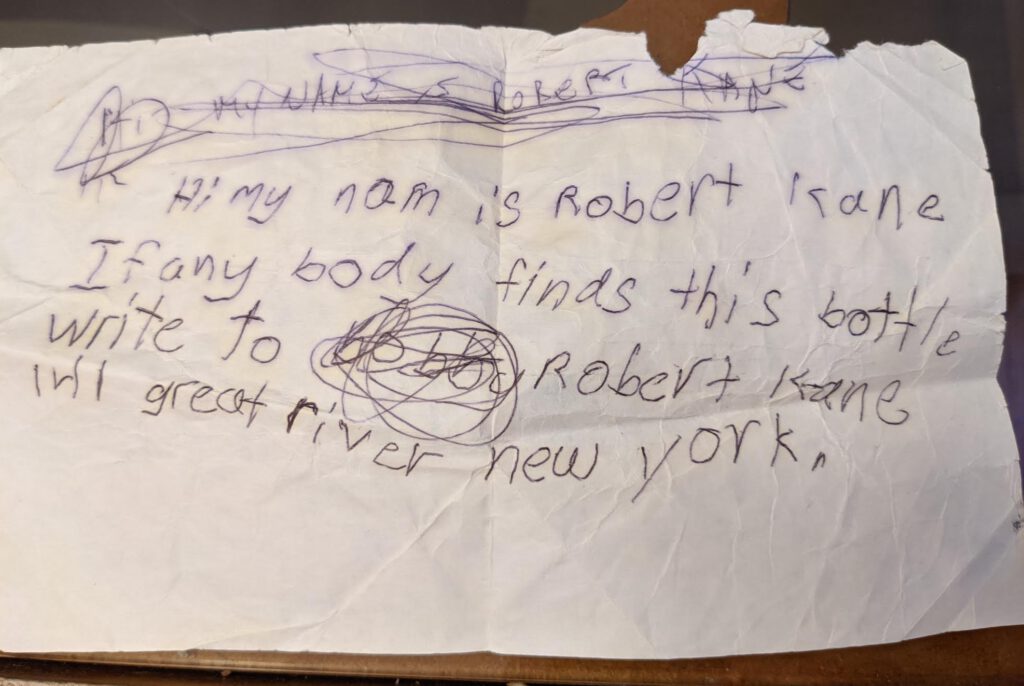 Hi MY NAME is ROBERT KANE
Hi my nam is Robert Kane
If any body finds this bottle
write to Robert Kane
great river new york.